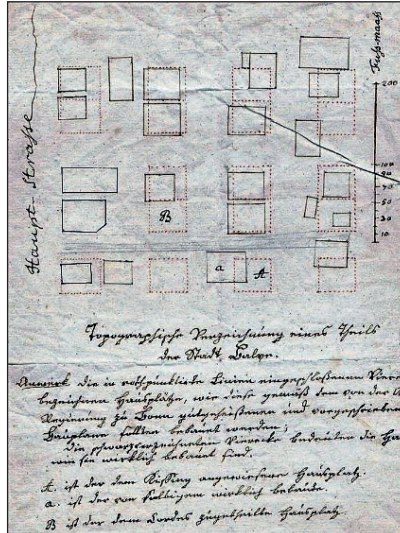 Haupt-Straße
Fussmaass
200
100
50
30
10
B
a
A
Topographische Verzeichnung eines Theils
der Stadt, Balve.
Anmerk die in rothpunktirte Linien eingeschloßenen Viere
bezeichnen Hausplätze, wie diese gemäß dem von der
Regierung zu Bonn gutgeheißenen und vorgeschriebenen
Bauplane sollten bebauet werden;
die schwarzgezeichneten Vierecke bedeuten die
wie sie wirklich bebauet sind.
A. ist der dem Kissing angewiesene Hausplatz.
a. ist der von selbigem wirklich bebaute.
B ist der dem Cordes zugetheilte Hausplatz